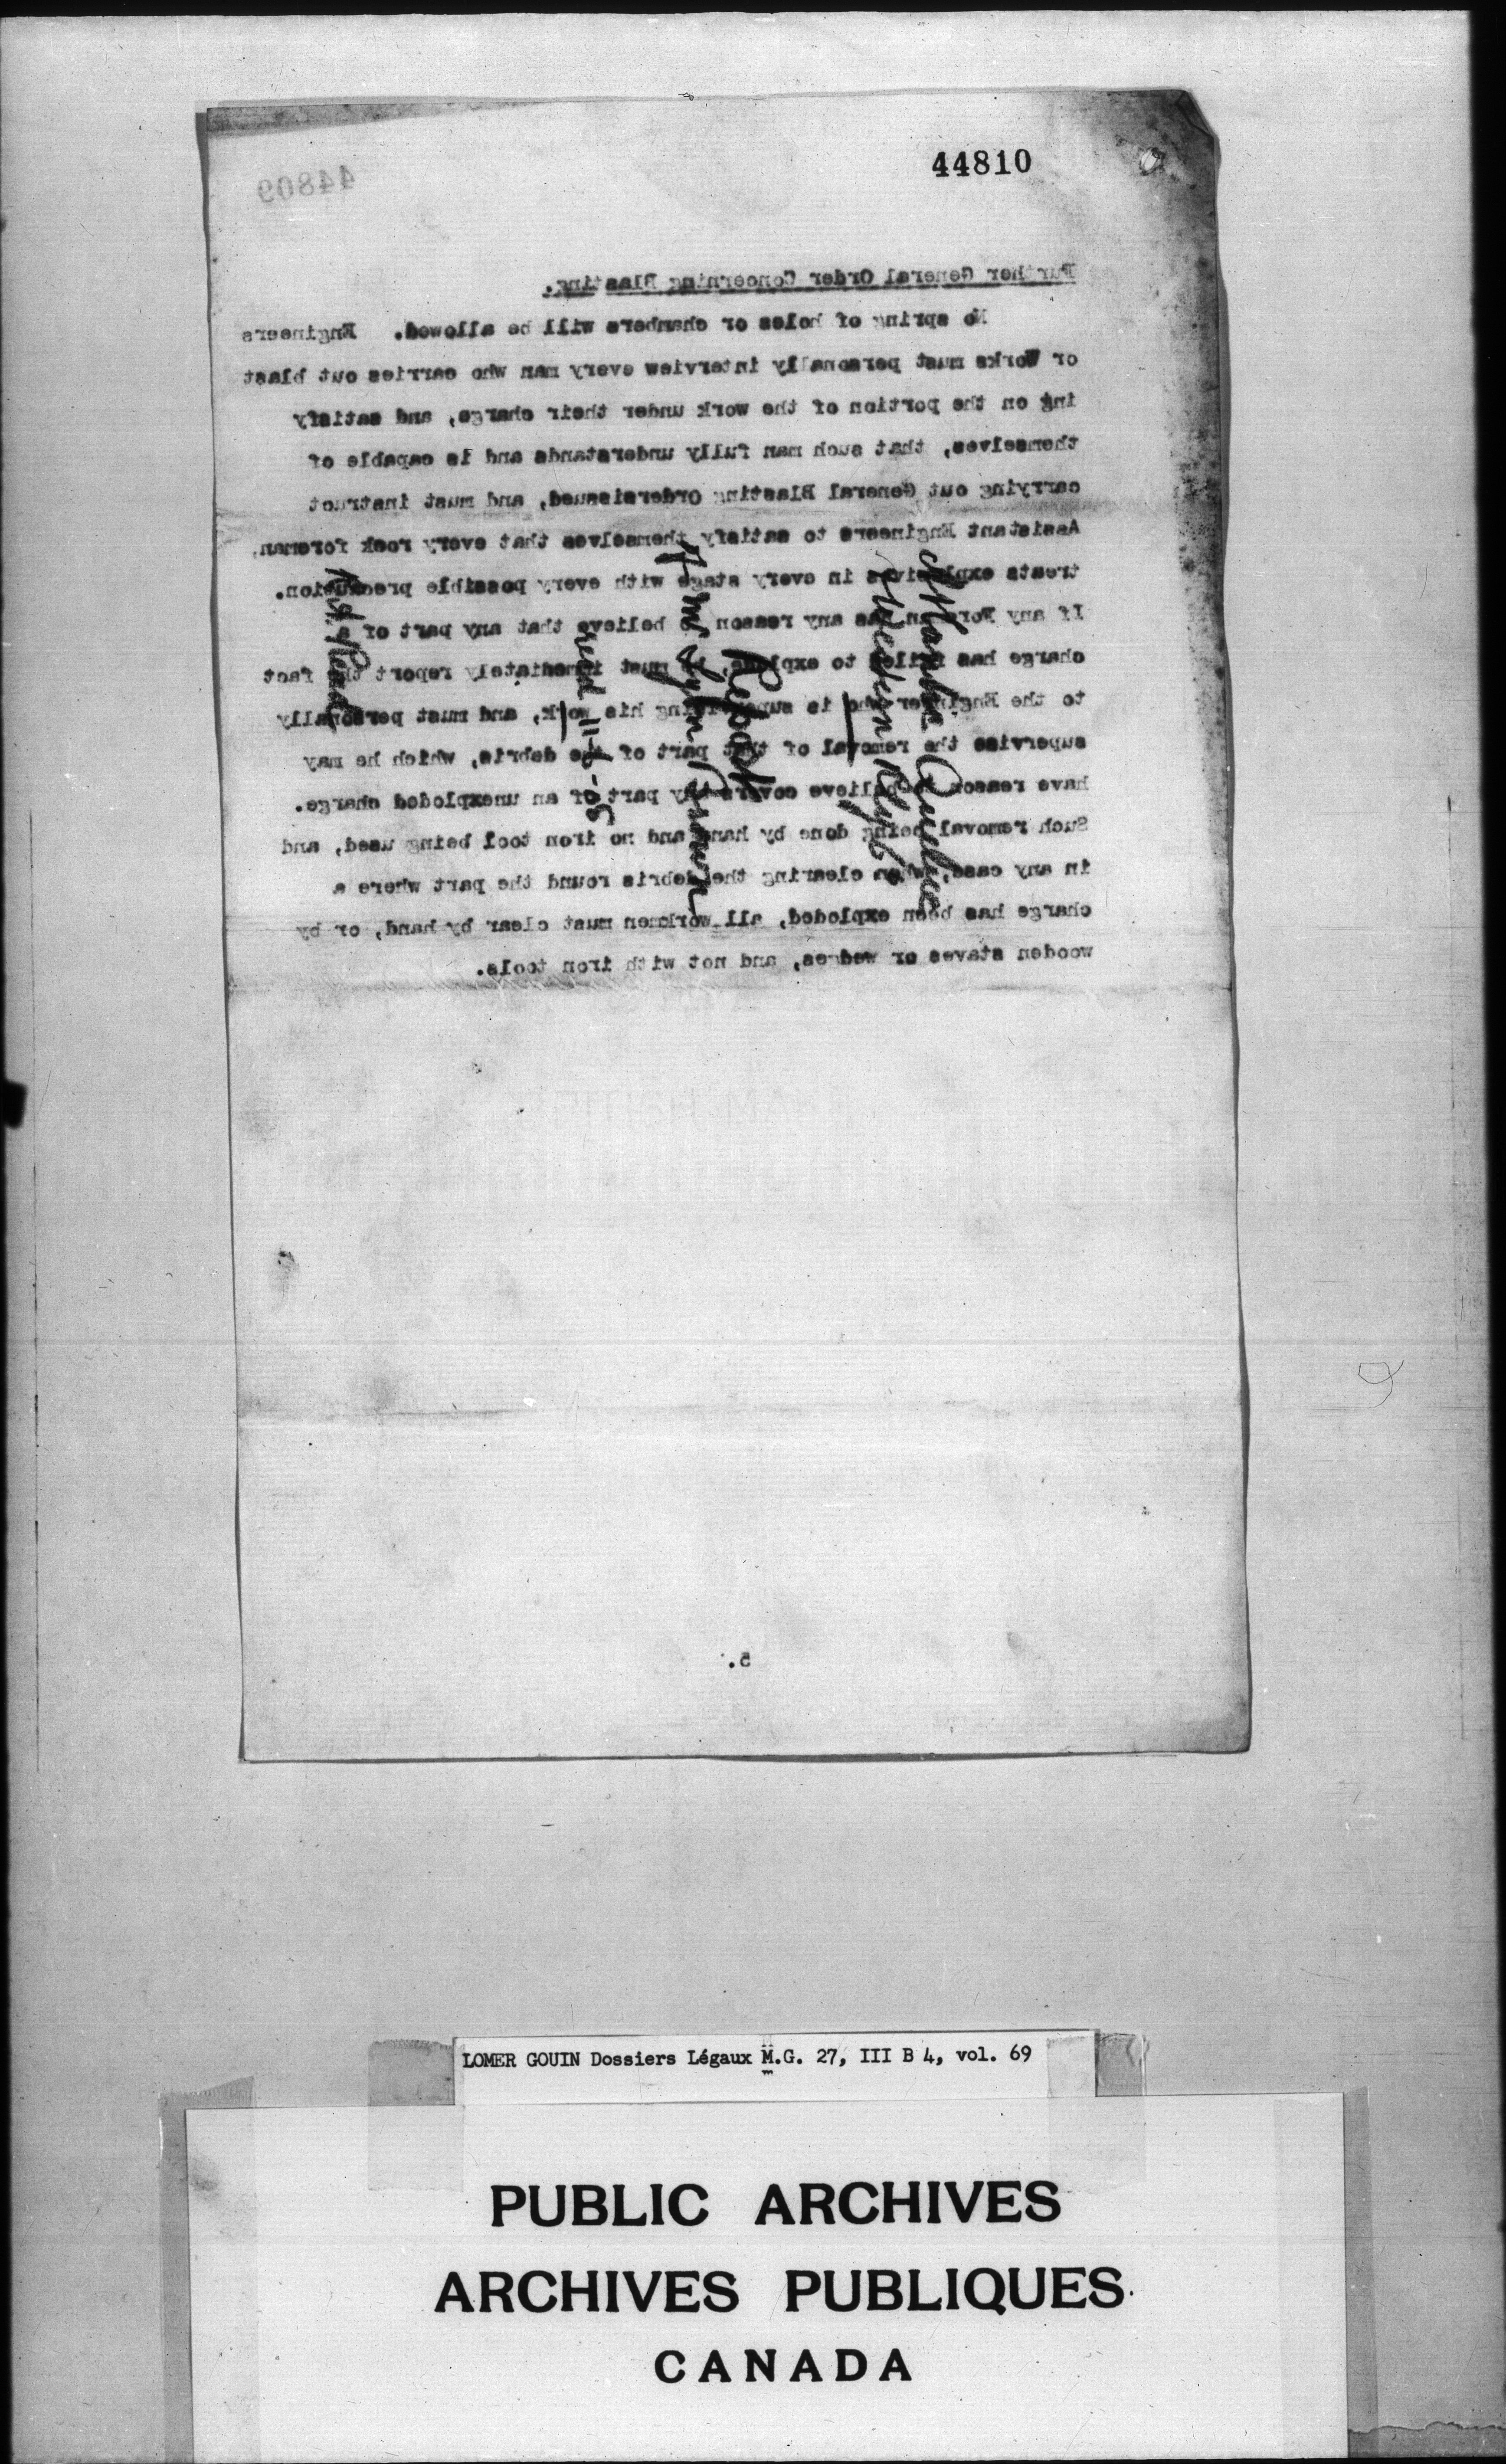 44810
44809
Further General Order Concerning Blasting.
No spring of holes or chambers will be allowed. Engineers
or Works must personally interview every man who carries out blast
ing on the portion of the work under their charge, and satisfy
themselves, that such man fully understands and is capable of
carrying out General Blasting Ordersissued, and must instruct
Assistant Engineers to satisfy themselves that every rock foreman,
treats explosives in every stage with every possible precaution.
If any Foreman has any reason to believe that any part of a
charge has failed to explode, he must immediately report the fact
to the Engineer who is supervising his work, and must personally
supervise the removal of that part of the debris, which he may
have reason to believe covers any part of an unexploded charge.
Such removal being done by hand and no iron tool being used, and
in any case, when clearing the debris round the part where a
charge has been exploded, all workmen must clear by hand, or by
wooden staves or wedges, and not with iron tools.
Quebec
Report
5.
LOMER GOUIN Dossiers Légaux M.G. 27, III B 4, vol. 69
PUBLIC ARCHIVES
ARCHIVES PUBLIQUES
CANADA